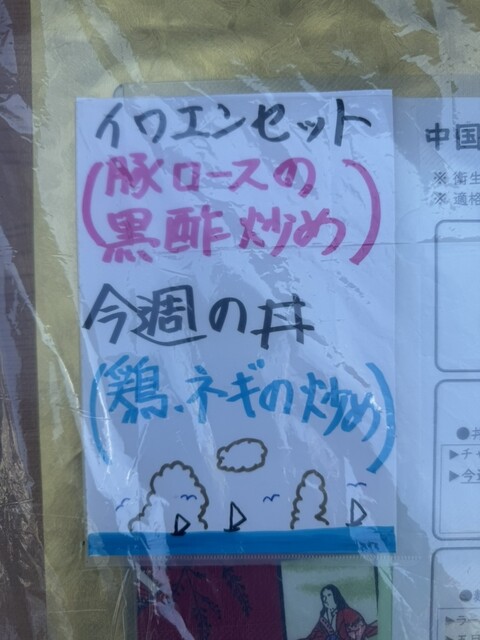 イワエンセット
(豚ロースの
黒酢炒め)
今週の丼
(鶏、ネギの炒め)
中国
※衛生
※適格
▶チャ
▶今週
▶ラー